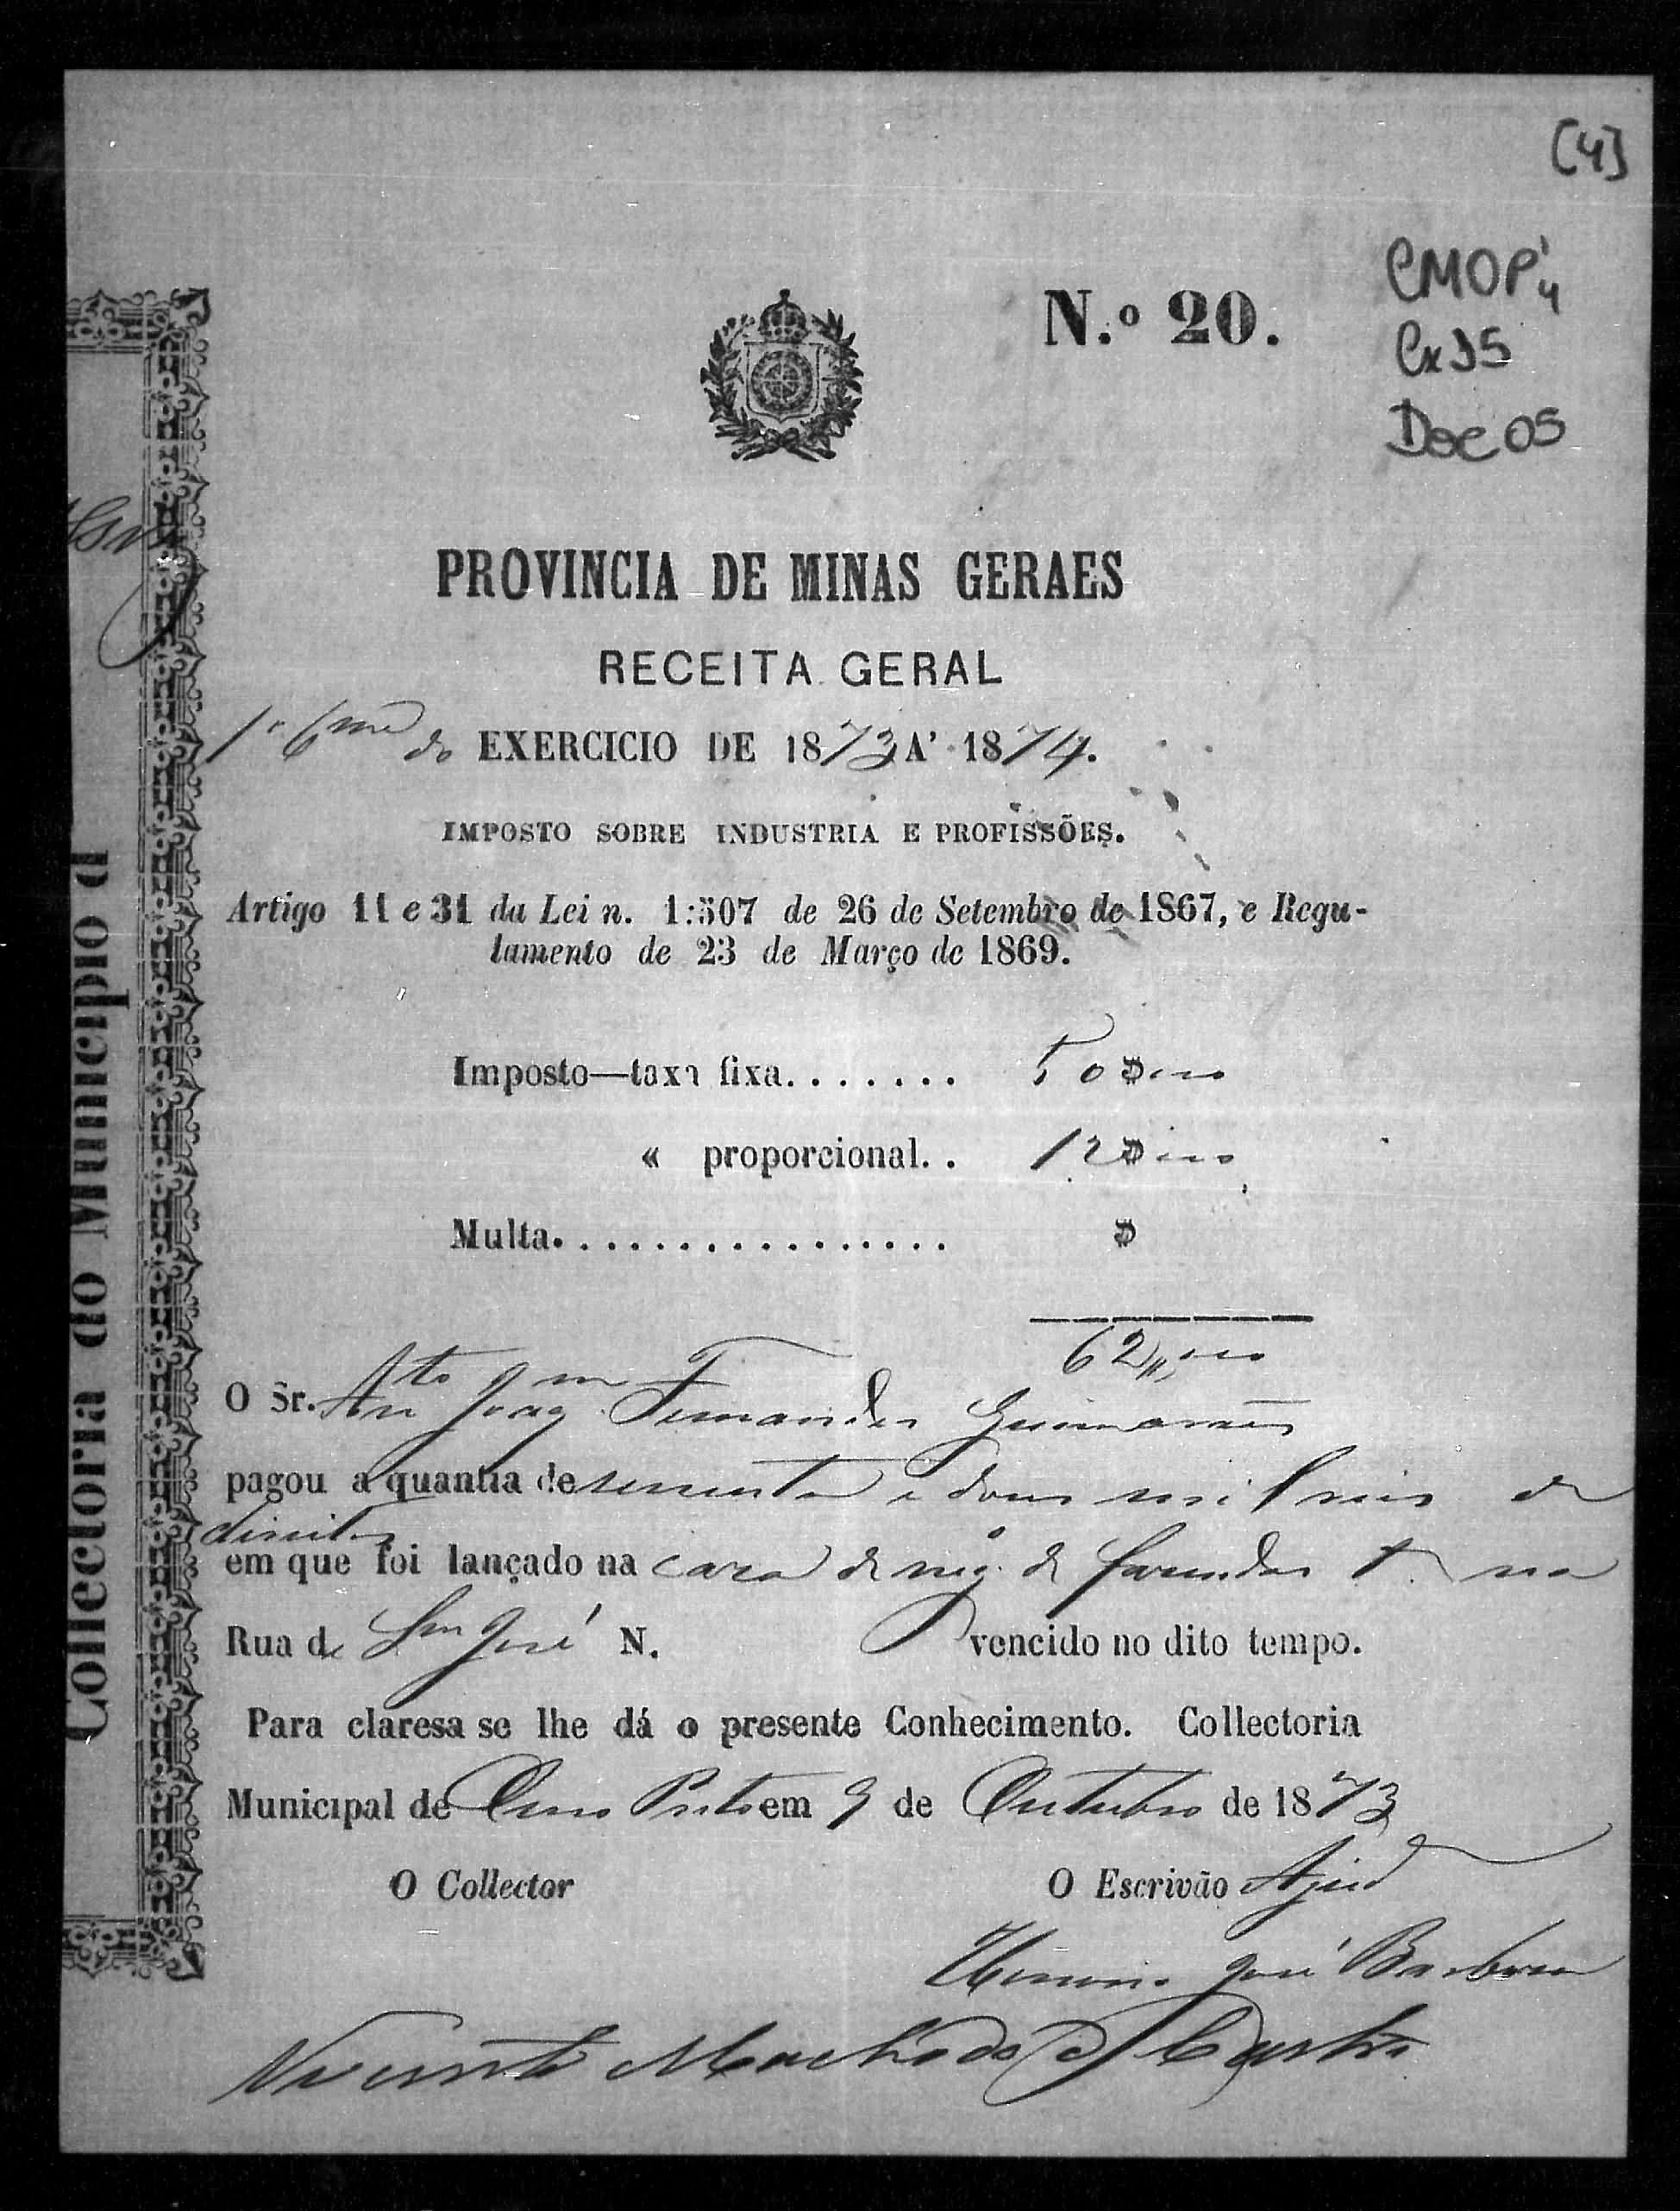 [4]
CMOP
Cx 35
Doc 05
N.º 20.
PROVINCIA DE MINAS GERAES
RECEITA GERAL
1º 6me do EXERCICIO DE 1873 A' 1874.
IMPOSTO SOBRE INDUSTRIA E PROFISSÕES.
Artigo 11 e 31 da Lei n. 1:507 de 26 de Setembro de 1867, e Regu-
lamento de 23 de Março de 1869.
Imposto—taxa fixa....... 50$000
« proporcional.. 12$000
Multa................ $
62,,000
O Sr. Anto Joaqm Fernandes Guimarães
pagou a quantia de sessenta e dous mil reis de
direitos
em que foi lançado na casa de neg.º de fazendas na
Rua de Sm José N. vencido no dito tempo.
Para claresa se lhe dá o presente Conhecimento. Collectoria
Municipal de Ouro Preto em 9 de Outubro de 1873
O Collector O Escrivão Ajud
José Barbosa
Vicente Machado de Castro
Collectoria do Municipio d